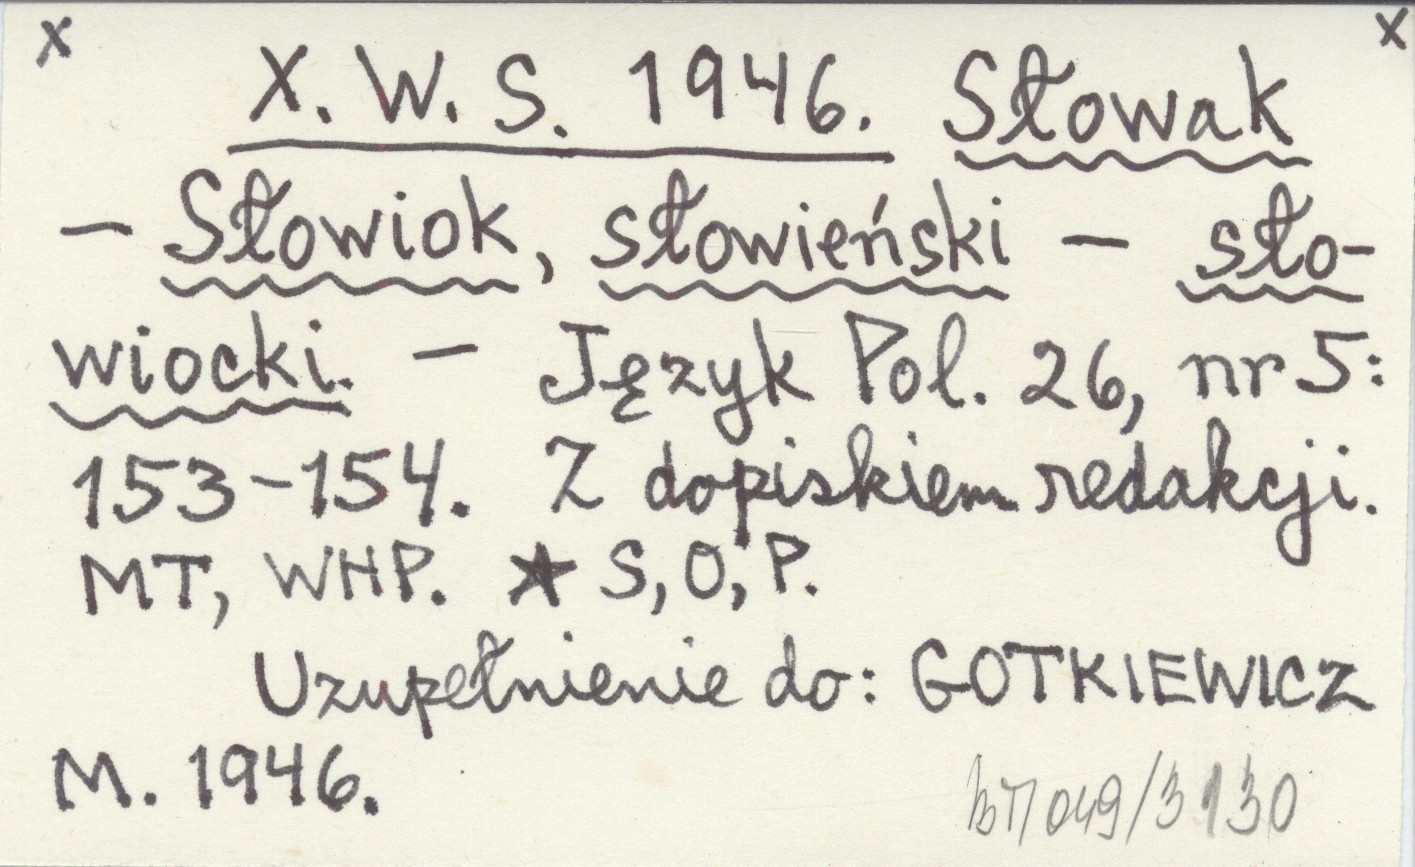 x x
X. W. S. 1946. Słowak
– Słowiok, słowieński – sło-
wiocki. – Język Pol. 26, nr 5:
153-154. Z dopiskiem redakcji.
MT, WHP. ★ S, O, P.
Uzupełnienie do: GOTKIEWICZ
M. 1946.
049/3130